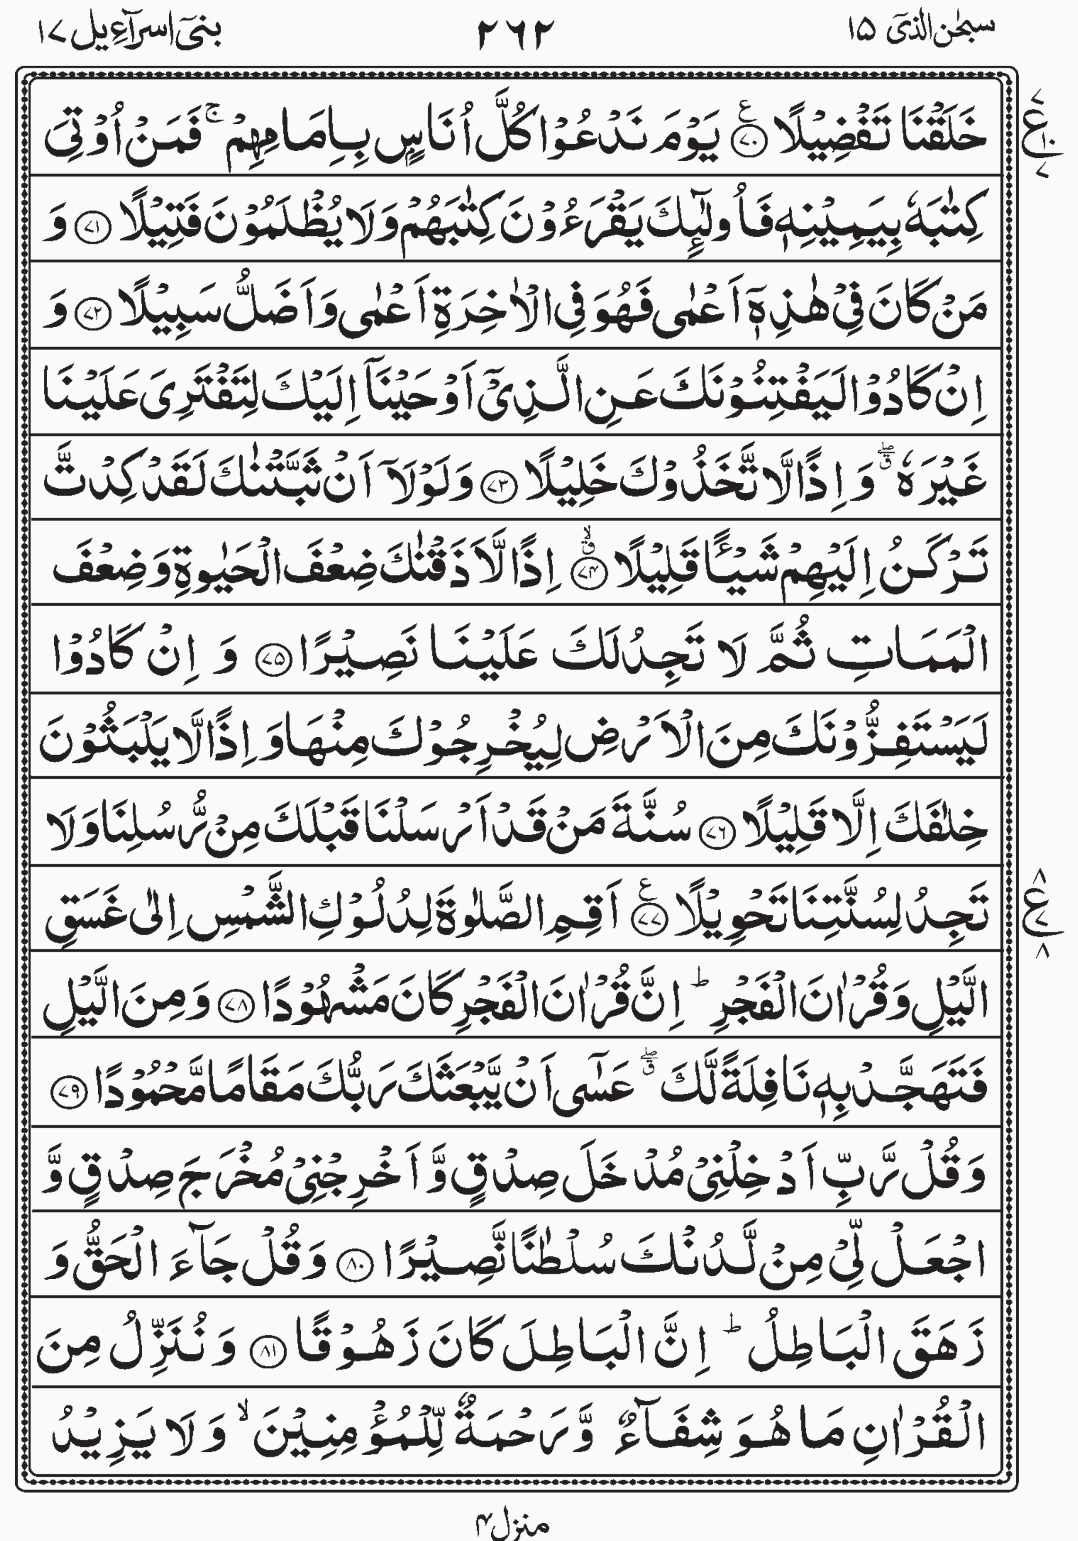 سبحٰن الذیٓ ۱۵
۲۶۲
بنیٓ اسرآءِیل ۱۷
خَلَقْنَا تَفْضِيْلًا ۟ع ﴿۷۰﴾ يَوْمَ نَدْعُوْا كُلَّ اُنَاسٍۭ بِاِمَامِهِمْ ۚ فَمَنْ اُوْتِىَ
ع ۷ ۱۰ ۷
كِتٰبَهٗ بِيَمِيْنِهٖ فَاُولٰٓئِكَ يَقْرَءُوْنَ كِتٰبَهُمْ وَلَا يُظْلَمُوْنَ فَتِيْلًا ﴿۷۱﴾ وَ
مَنْ كَانَ فِىْ هٰذِهٖۤ اَعْمٰى فَهُوَ فِى الْاٰخِرَةِ اَعْمٰى وَاَضَلُّ سَبِيْلًا ﴿۷۲﴾ وَ
اِنْ كَادُوْا لَيَفْتِنُوْنَكَ عَنِ الَّذِىْۤ اَوْحَيْنَاۤ اِلَيْكَ لِتَفْتَرِىَ عَلَيْنَا
غَيْرَهٗ ۖق وَ اِذًا لَّا تَّخَذُوْكَ خَلِيْلًا ﴿۷۳﴾ وَلَوْلَاۤ اَنْ ثَبَّتْنٰكَ لَقَدْ كِدْتَّ
تَرْكَنُ اِلَيْهِمْ شَيْـًٔا قَلِيْلًا ۙق ﴿۷۴﴾ اِذًا لَّاَذَقْنٰكَ ضِعْفَ الْحَيٰوةِ وَضِعْفَ
الْمَمَاتِ ثُمَّ لَا تَجِدُ لَكَ عَلَيْنَا نَصِيْرًا ﴿۷۵﴾ وَ اِنْ كَادُوْا
لَيَسْتَفِزُّوْنَكَ مِنَ الْاَرْضِ لِيُخْرِجُوْكَ مِنْهَا وَ اِذًا لَّا يَلْبَثُوْنَ
خِلٰفَكَ اِلَّا قَلِيْلًا ﴿۷۶﴾ سُنَّةَ مَنْ قَدْ اَرْسَلْنَا قَبْلَكَ مِنْ رُّسُلِنَا وَلَا
تَجِدُ لِسُنَّتِنَا تَحْوِيْلًا ۟ع ﴿۷۷﴾ اَقِمِ الصَّلٰوةَ لِدُلُوْكِ الشَّمْسِ اِلٰى غَسَقِ
ع ۸ ۷ ۸
الَّيْلِ وَقُرْاٰنَ الْفَجْرِ ؕ اِنَّ قُرْاٰنَ الْفَجْرِ كَانَ مَشْهُوْدًا ﴿۷۸﴾ وَمِنَ الَّيْلِ
فَتَهَجَّدْ بِهٖ نَافِلَةً لَّكَ ۖق عَسٰٓى اَنْ يَّبْعَثَكَ رَبُّكَ مَقَامًا مَّحْمُوْدًا ﴿۷۹﴾
وَقُلْ رَّبِّ اَدْخِلْنِىْ مُدْخَلَ صِدْقٍ وَّ اَخْرِجْنِىْ مُخْرَجَ صِدْقٍ وَّ
اجْعَلْ لِّىْ مِنْ لَّدُنْكَ سُلْطٰنًا نَّصِيْرًا ﴿۸۰﴾ وَقُلْ جَآءَ الْحَقُّ وَ
زَهَقَ الْبَاطِلُ ؕ اِنَّ الْبَاطِلَ كَانَ زَهُوْقًا ﴿۸۱﴾ وَ نُنَزِّلُ مِنَ
الْقُرْاٰنِ مَا هُوَ شِفَآءٌ وَّرَحْمَةٌ لِّلْمُؤْمِنِيْنَ ۙ وَ لَا يَزِيْدُ
منزل ۴